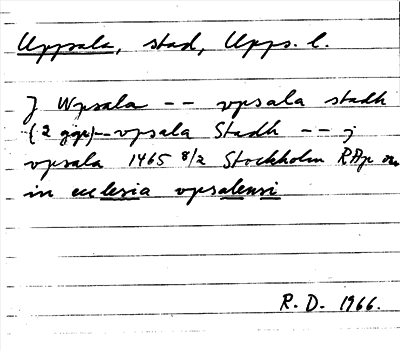 Uppsala, stad, Upps. l.
J Wpsala -- vpsala stadh
(2 ggr) -- vpsala Stadh -- j
vpsala 1465 8/2 Stockholm RAp or.
in ecclesia vpsalensi
R. D. 1966.